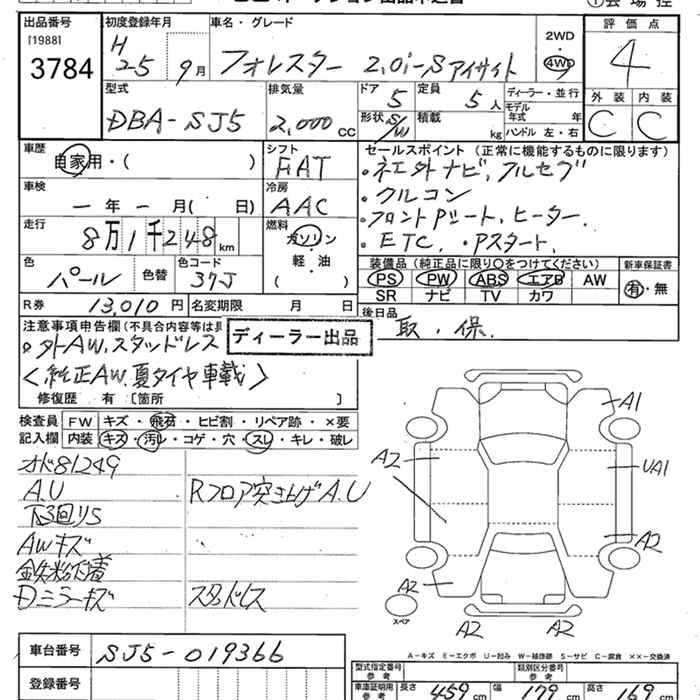 出品番号 初度登録年月 車名・グレード 2WD 評価点
[1988] H
3784 25 9月 フォレスター 2.0i-Sアイサイト 4WD 4
型式 排気量 ドア 定員 ディーラー・並行 外装 内装
DBA-SJ5 2,000cc 5 5人 モデル年式 年 C C
形状 S/W 積載 kg ハンドル 左・右
車歴 シフト セールスポイント(正常に機能するものに限ります)
自家用・( ) FAT ・社外ナビ,フルセグ
車検 冷房 ・クルコン
ー年ー月( 日) AAC ・フロントPシート,ヒーター.
走行 燃料 ・ETC.・Pスタート.
8万1千248km ガソリン
軽・油
( )
色 色替 色コード 装備品(純正品に限り〇をつけてください) 新車保証書
パール 37J PS PW ABS エアB AW 有・無
SR ナビ TV カワ
R券 13,010円 名変期限 月 日 後日品
取.保.
注意事項申告欄(不具合内容等は
ディーラー出品
・外AW.スタッドレス
<純正AW.夏タイヤ車載>
修復歴 有〔箇所 〕
検査員 FW キズ・飛石・ヒビ割・リペア跡・×要
記入欄 内装 キズ・汚レ・コゲ・穴・スレ・キレ・破レ
オド81249
A.U Rフロア突き上げA.U
下回りS
AWキズ
鉄粉付着
Dミラーキズ スタッドレス
A1
A2 UA1
A2
A2
スペア
A2 A2
A-キズ E-エクボ U-凹み W-補修跡 S-サビ C-腐食 ××-交換済
車台番号 SJ5-019366
型式指定番号 参考 類別区分番号 参考
登録番号
車庫証明用 参考 長さ 459cm 幅 179cm 高さ 169cm